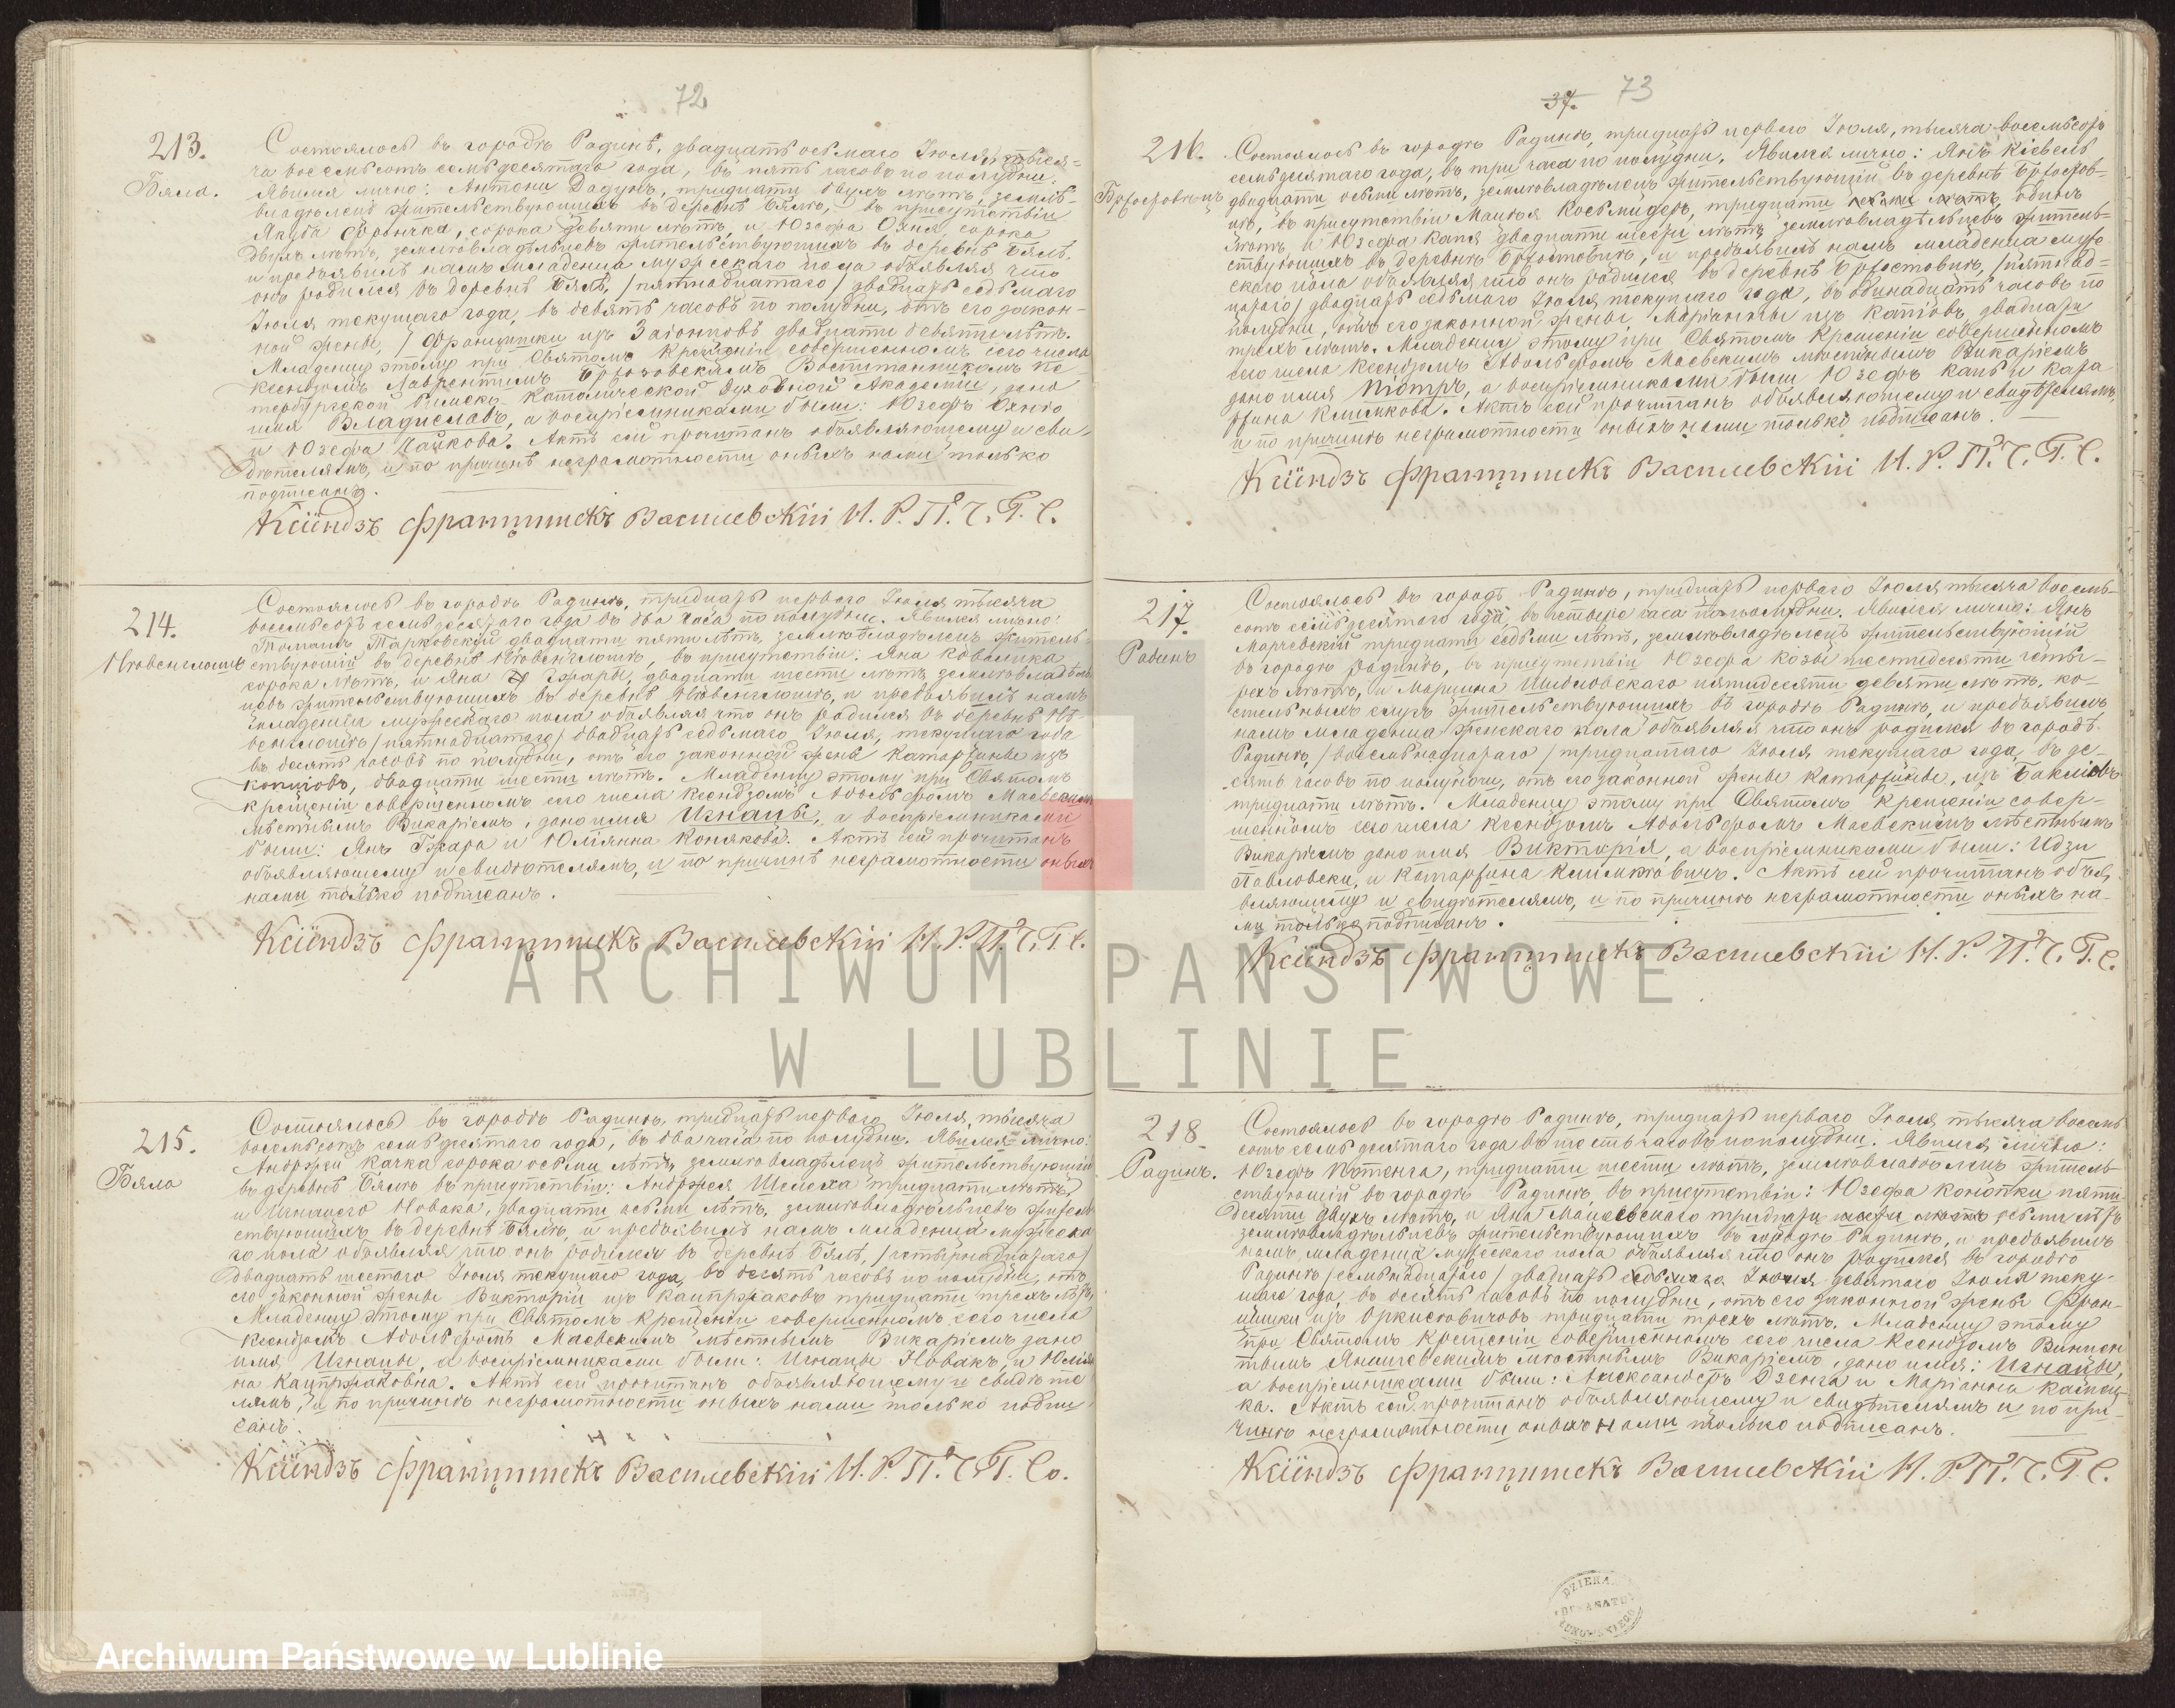 72
213.
Бяла.
Состоялось въ городѣ Радинѣ, двадцать осьмаго Іюля, тысяча
восемьсотъ семьдесятаго года, въ пять часовъ по полудни.
Явился лично: Антони Дадунъ, тридцати двухъ лѣтъ, земле-
владѣлецъ жительствующихъ въ деревнѣ Бялѣ, въ присутствіи
Якуба Франчка, сорока девяти лѣтъ, и Юзефа Охня, сорока
двухъ лѣтъ, земловладѣльцевъ жительствующихъ въ деревнѣ Бялѣ,
и предъявилъ намъ младенца мужескаго пола объявляя что
онъ родился въ деревнѣ Бялѣ, /пятнадцатаго/ двадцать седьмаго
Іюля текущаго года, въ девять часовъ по полудни, отъ его закон-
ной жены, Францишки изъ Загонповъ двадцати девяти лѣтъ.
Младенцу этому при Святомъ Крещеніи совершенномъ сего числа
Ксендзомъ Лаврентимъ Воспитанникомъ Пе-
тербургской Римско-Католической Духовной Академіи, дано
имя Владиславъ, а воспріемниками были: Юзефъ Охню
и Юзефа Пачкова. Актъ сей прочитанъ объявляющему и сви-
дѣтелямъ, и по причинѣ неграмотности оныхъ нами только
подписанъ.
Ксіондзъ Францишекъ Василевскій И. Р. П. Ч. Г. С.
214.
Состоялось въ городѣ Радинѣ, тридцать перваго Іюля тысяча
восемьсотъ семьдесятаго года въ два часа по полудни. Явился лично:
Томашъ Тарковскій двадцати пяти лѣтъ, земловладѣлецъ житель-
ствующій въ деревнѣ въ присутствіи: Яна Ковалика
сорока лѣтъ, и Яна Гжары, двадцати шести лѣтъ земловладѣль-
цевъ жительствующихъ въ деревнѣ и предъявилъ намъ
младенца мужескаго пола объявляя что онъ родился въ деревнѣ
/пятнадцатаго/ двадцать седьмаго Іюля, текущаго года
въ десять часовъ по полудни, отъ его законной жены Катаржины изъ
Копцювъ, двадцати шести лѣтъ. Младенцу этому при Святомъ
крещеніи совершенномъ сего числа Ксендзомъ Адольфомъ Маевскимъ
мѣстнымъ Викаріемъ, дано имя Игнацы, а воспріемниками
были: Янъ Гжара и Юліянна Конякова. Актъ сей прочитанъ
объявляющему и свидѣтелямъ, и по причинѣ неграмотности оныхъ
нами только подписанъ.
Ксіондзъ Францишекъ Василевскій И. Р. П. Ч. Г. С.
215.
Бяла
Состоялось въ городѣ Радинѣ, тридцать перваго Іюля, тысяча
восемьсотъ семьдесятаго года, въ два часа по полудни. Явился лично:
Андржей Качка сорока осьми лѣтъ, земловладѣлецъ жительствующій
въ деревнѣ Бялѣ въ присутствіи: Андржея Шелеха тридцати лѣтъ,
и Игнацего Новака, двадцати осьми лѣтъ, земловладѣльцевъ житель-
ствующихъ въ деревнѣ Бялѣ, и предъявилъ намъ младенца мужеска-
го пола объявляя что онъ родился въ деревнѣ Бялѣ, /четырнадцатаго/
двадцать шестаго Іюля текущаго года, въ десять часовъ по полудни, отъ
его законной жены Викторіи изъ Кацпржаковъ тридцати трехъ лѣтъ,
Младенцу этому при Святомъ крещеніи совершенномъ сего числа
Ксендзомъ Адольфомъ Маевскимъ мѣстнымъ Викаріемъ дано
имя Игнацы, а воспріемниками были: Игнацы Новакъ, и Юлія-
на Кацпржаковна. Актъ сей прочитанъ объявляющему и свидѣте-
лямъ, и по причинѣ неграмотности оныхъ нами только подпи-
санъ.
Ксіондзъ Францишекъ Василевскій И. Р. П. Ч. Г. С.
37. 73
216.
Состоялось въ городѣ Радинѣ, тридцать перваго Іюля, тысяча восемьсотъ
семьдесятаго года, въ три часа по полудни. Явился лично: Янъ Кіевель
двадцати осьми лѣтъ, земловладѣлецъ жительствующій въ деревнѣ
въ присутствіи Мацѣя Косьмидеръ, тридцати одинъ
лѣтъ, и Юзефа Капя двадцати шести лѣтъ земловладѣльцевъ житель-
ствующихъ въ деревнѣ и предъявилъ намъ младенца муже-
скаго пола объявляя что онъ родился въ деревнѣ /пятнад-
цатаго/ двадцать седьмаго Іюля текущаго года, въ одинадцать часовъ по
полудни, отъ его законной жены, Маріанны изъ Капювъ, двадцати
трехъ лѣтъ. Младенцу этому при Святомъ Крещеніи совершенномъ
сего числа Ксендзомъ Адольфомъ Маевскимъ мѣстнымъ Викаріемъ
дано имя Піотръ, а воспріемниками были Юзефъ Капь и Ката-
ржина Климкова. Актъ сей прочитанъ объявляющему и свидѣтелямъ,
и по причинѣ неграмотности оныхъ нами только подписанъ.
Ксіондзъ Францишекъ Василевскій И. Р. П. Ч. Г. С.
217.
Радинъ
Состоялось въ городѣ Радинѣ, тридцать перваго Іюля тысяча восемь-
сотъ семьдесятаго года, въ четыре часа по полудни. Явился лично: Янъ
Марчевскій тридцати седьми лѣтъ, земловладѣлецъ жительствующій
въ городѣ Радинѣ, въ присутствіи Юзефа Козы шестидесяти четы-
рехъ лѣтъ, и Марцина Шидловскаго пятидесяти девяти лѣтъ, ко-
стельныхъ слугъ жительствующихъ въ городѣ Радинѣ, и предъявилъ
намъ младенца женскаго пола объявляя что онъ родился въ городѣ
Радинѣ, /восемьнадцатаго/ тридцатаго Іюля текущаго года, въ де-
сять часовъ по полуночи, отъ его законной жены Катаржины, изъ Баклювъ
тридцати лѣтъ. Младенцу этому при Святомъ Крещеніи совер-
шенномъ сего числа Ксендзомъ Адольфомъ Маевскимъ мѣстнымъ
Викаріемъ дано имя Викторія, а воспріемниками были: Идзи
Павловски, и Катаржина Климковичъ. Актъ сей прочитанъ объя-
вляющему и свидѣтелямъ, и по причинѣ неграмотности оныхъ на-
ми только подписанъ.
Ксіондзъ Францишекъ Василевскій И. Р. П. Ч. Г. С.
218.
Радинъ.
Состоялось въ городѣ Радинѣ, тридцать перваго Іюля тысяча восемь
сотъ семьдесятаго года въ шесть часовъ по полудни. Явился лично:
Юзефъ Петенга, тридцати шести лѣтъ, земловладѣлецъ житель-
ствующій въ городѣ Радинѣ, въ присутствіи: Юзефа Конопки пяти-
десяти двухъ лѣтъ, и Яна Мацеевскаго тридцати осьми лѣтъ
земловладѣльцевъ жительствующихъ въ городѣ Радинѣ, и предъявилъ
намъ младенца мужескаго пола объявляя что онъ родился въ городѣ
Радинѣ /семьнадцатаго/ двадцать девятаго Іюля теку-
щаго года, въ десять часовъ по полудни, отъ его законной жены Фран-
цишки изъ Оркисевичовъ тридцати трехъ лѣтъ. Младенцу этому
при Святомъ Крещеніи совершенномъ сего числа Ксендзомъ Винцен-
тымъ Янишевскимъ мѣстнымъ Викаріемъ, дано имя: Игнацы,
а воспріемниками были: Александеръ Дзенга и Маріанна
Актъ сей прочитанъ объявляющему и свидѣтелямъ и по при-
чинѣ неграмотности оныхъ нами только подписанъ.
Ксіондзъ Францишекъ Василевскій И. Р. П. Ч. Г. С.
ARCHIWUM PAŃSTWOWE
W LUBLINIE
Archiwum Państwowe w Lublinie